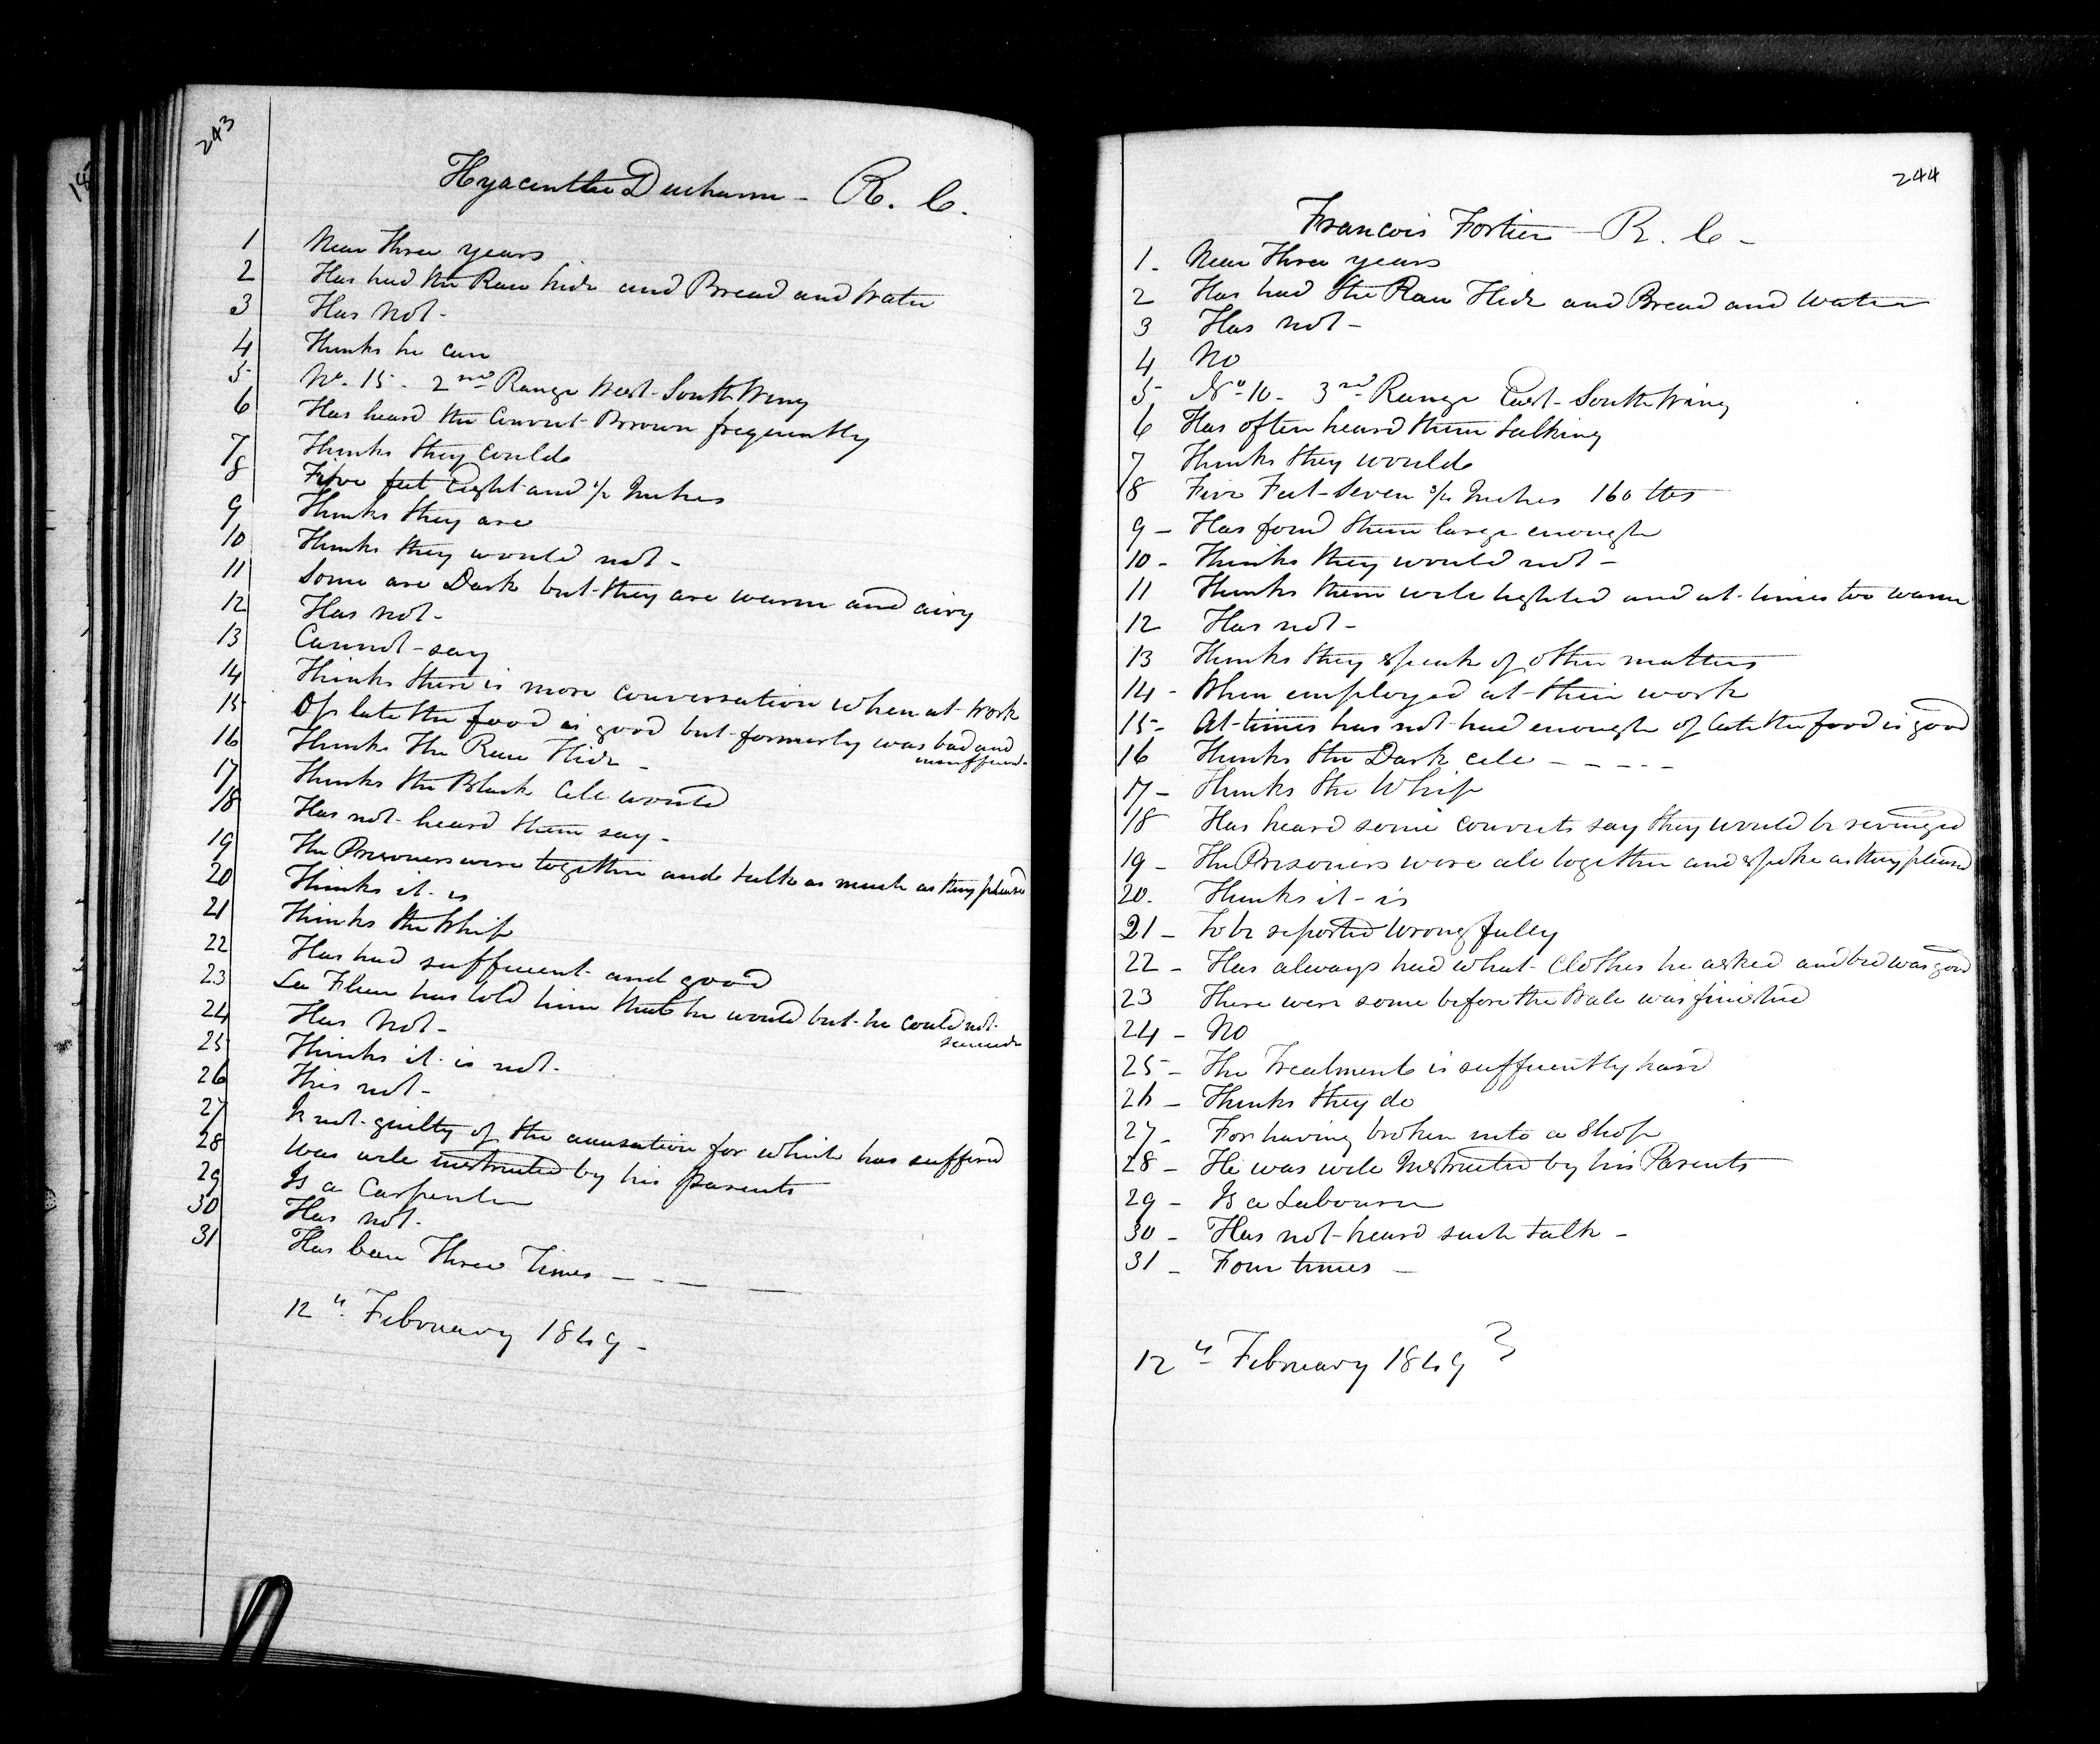 243
Hyacinthe Ducharm - R. C.
1 Near Three years
2 Has had the Raw hide and Bread and Water
3 Has Not -
4 Thinks he can
5 No. 15 - 2nd Range West - South Wing
6 Has heard the Convict Brown frequently
7 Thinks they could
8 Five feet Eight and 1/2 Inches
9 Thinks they are
10 Thinks they would not -
11 Some are Dark but they are warm and airy
12 Has not -
13 Cannot - say
14 Thinks there is more conversation when at work
15 Of late the food is good but formerly was bad and
16 Thinks The Raw Hide -
17 Thinks the Black Cell would
18 Has not heard them say -
19 The Prisoners were together and talk as much as they pleased
20 Thinks it is
21 Thinks the Whip
22 Has had sufficient and good
23 La Fleur has told him that he would but he could not
24 Has Not -
25 Thinks it is not -
26 This not -
27 Is not guilty of the accusation for which has suffered
28 Was well instructed by his parents
29 Is a Carpenter
30 Has not -
31 Has been Three Times - - - -
12th February 1849 -
244
Francois Fortier - R. C -
1. Near Three years
2 Has had the Raw Hide and Bread and Water
3 Has not -
4 No
5 No 10 - 3rd Range East - South Wing
6 Has often heard them talking
7 Thinks they would
8 Five Feet - Seven 3/4 Inches 160 lbs
9 - Has found them large enough
10 - Thinks they would not -
11 Thinks them well lighted and at times too warm
12 Has not -
13 Thinks they speak of other matters
14 - When employed at their work
15 - At times has not had enough of late the food is good
16 Thinks the Dark cell - - - - -
17 - Thinks the Whip
18 Has heard some convicts say they would be revenged
19 - The Prisoners were all together and spoke as they pleased
20. Thinks it is
21 - To be reported wrongfully
22 - Has always had what Clothes he asked and bed was good
23 There were some before the Wall was finished
24 - No
25 - The Treatment is sufficiently hard
26 - Thinks they do
27 - For having broken into a Shop
28 - He was well Instructed by his Parents
29 - Is a Labourer
30 - Has not heard such talk -
31 - Four times -
12th February 1849